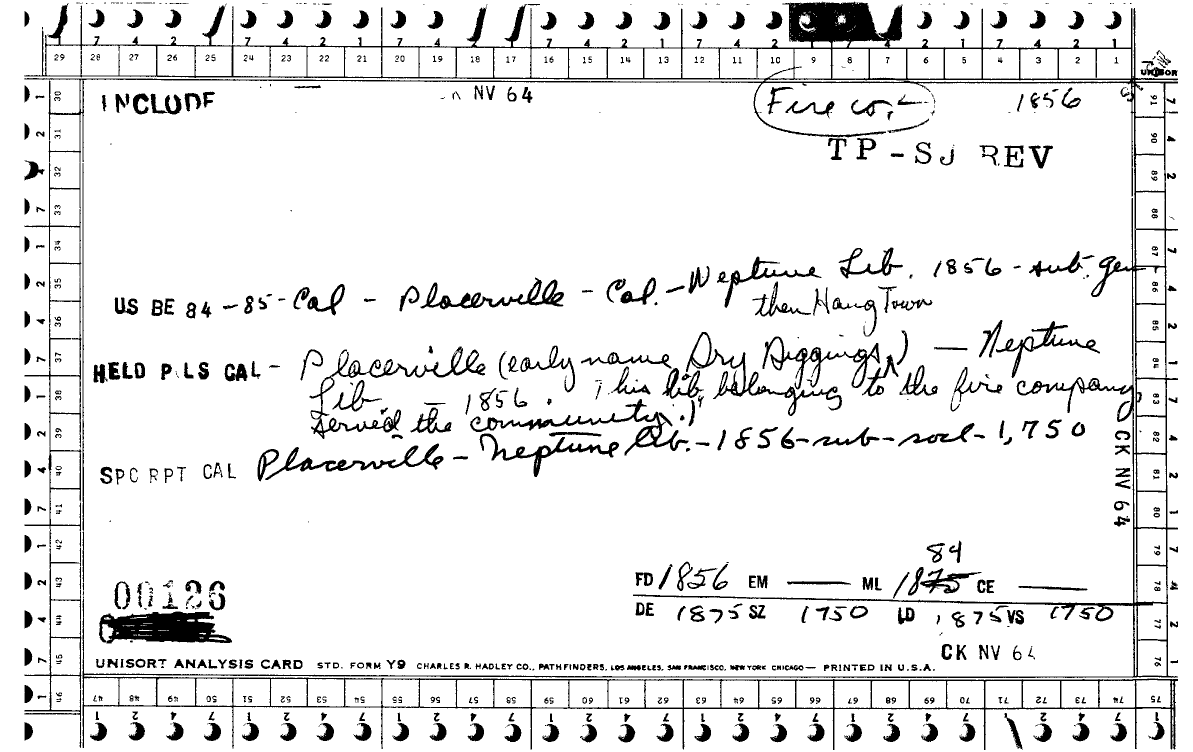 7 4 2 1 7 4 2 1 7 4 2 1 7 4 2 1 7 4 2 1 7 4 2 1 7 4 2 1
29 28 27 26 25 24 23 22 21 20 19 18 17 16 15 14 13 12 11 10 9 8 7 6 5 4 3 2 1
UNISORT
INCLUDE NV 64 Fire co. 1856
TP-SJ REV
US BE 84-85-Cal - Placerville - Cal. - Neptune Lib. 1856 - sub. gen
then Hang Town
HELD P LS CAL - Placerville (early name Dry Diggings) — Neptune
Lib 1856. This lib. belonging to the fire company,
served the community.)"
SPC RPT CAL Placerville - Neptune Lib. - 1856 - sub - socl - 1,750
CK NV 64
84
FD 1856 EM — ML 1875 CE —
00126
DE 1875 SZ 1750 LD 1875 VS 1750
CK NV 64
UNISORT ANALYSIS CARD STD. FORM Y9 CHARLES R. HADLEY CO., PATHFINDERS, LOS ANGELES, SAN FRANCISCO, NEW YORK CHICAGO — PRINTED IN U.S.A.
47 48 49 50 51 52 53 54 55 56 57 58 59 60 61 62 63 64 65 66 67 68 69 70 71 72 73 74 75
1 2 4 7 1 2 4 7 1 2 4 7 1 2 4 7 1 2 4 7 1 2 4 7 1 2 4 7 1